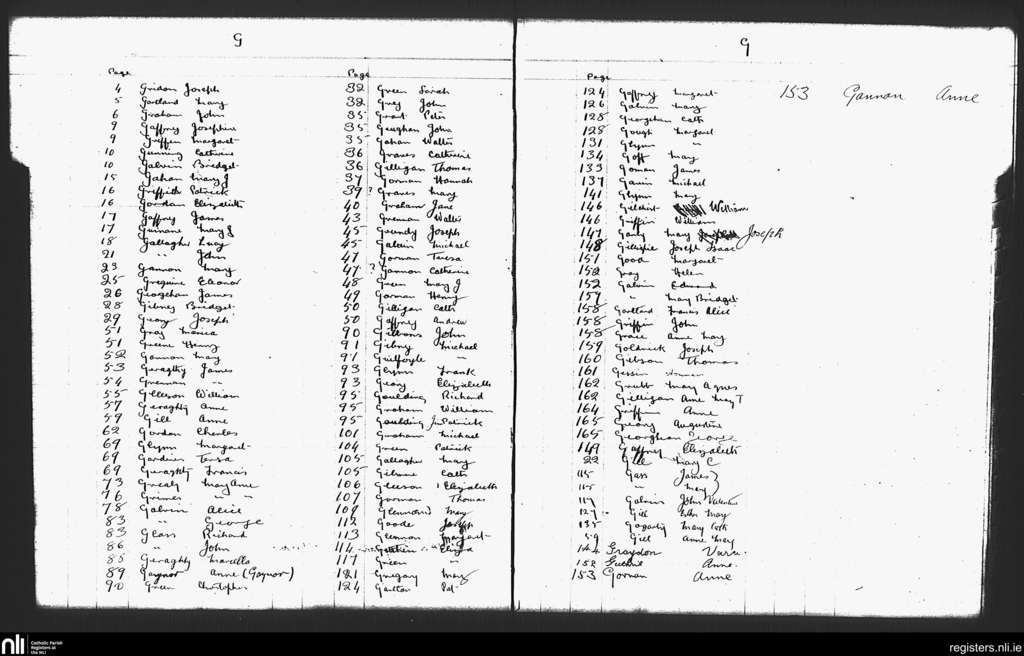 G
Page
4 Gridan Joseph
5 Gartland Mary
6 Graham John
9 Gaffney Josephine
9 Griffin Margaret
10 Gunning Catherine
10 Galvin Bridget
15 Gahan Mary J
16 Griffith Patrick
16 Gordon Elizabeth
17 Gaffney James
17 Guinane Mary J
18 Gallagher Lucy
21 " John
23 Gannon Mary
25 Gregoire Eleanor
26 Geoghehan James
28 Gibney Bridget
29 Geary Joseph
51 Gray Monica
51 Greene Henry
52 Gannon Mary
53 Geraghty James
54 Grennan "
55 Gleeson William
57 Geraghty Anne
59 Gill Anne
62 Gordon Charles
69 Glynn Margaret
69 Gardiner Teresa
69 Geraghty Francis
73 Grealy Mary Anne
76 Grimes " "
78 Galvin Alice
83 " George
83 Glass Richard
86 " John
88 Geraghty Marcella
89 Gaynor Anne (Gaynor)
90 Green Christopher
Page
32 Green Sarah
32 Grey John
35 Grant Peter
35 Geughan John
35 Gahan Walter
36 Graves Catherine
36 Gilligan Thomas
37 Gorman Hannah
39 ? Graves Mary
40 Graham Jane
43 Grennan Walter
45 Grundy Joseph
45 Galvin Michael
47 Gorman Teresa
47 ? Gannon Catherine
48 Green Mary J
49 Gorman Henry
50 Gilligan Cath
50 Gaffney Andrew
90 Gibbons John
91 Gibney Michael
91 Guilfoyle "
93 Glynn Frank
93 Geary Elizabeth
95 Goulding Richard
95 Graham William
95 Goulding Jn Patrick
101 Graham Michael
104 Green Patrick
105 Gallagher Mary
105 Gilsane Cath
106 Gleeson Elizabeth
107 Gorman Thomas
109 Glennon Mary
112 Goode Joseph
113 Glennon Margaret
114 Eliza
117 Green "
121 Gregory Mary
124 Garlton Pat
G
Page
124 Gaffney Margaret
126 Galvin Mary
128 Georgehan Cath
128 Gough Margaret
131 Glynn "
134 Goff Mary
135 Goman James
137 Gavin Michael
141 Glynn Mary
146 Gilchrist William
146 Griffin William
147 Gandy Mary Joseph
148 Gillespie Joseph Isaac
151 Good Margaret
152 Gray Helen
152 Galvin Edmund
157 " Mary Bridget
158 Gartland Francis Alice
158 Griffin John
158 Grace Anne Mary
159 Goldrick Joseph
160 Gibson Thomas
161 Gessin
162 Grubb Mary Agnes
162 Gilligan Anne Mary T
164 Griffin Anne
165 Geary Augustine
165 Georghan George
149 Gaffney Elizabeth
22 Gill Mary C
115 Gass James
115 " Mary
117 Galvin John Valentine
127 Gill Ellen Mary
135 Gogarty Mary Cath
59 Gill Anne Mary
144 Graydon Vera
152 Guthrie Anne
153 Gorman Anne
153 Gannon Anne
nli Catholic Parish Registers at the NLI
registers.nli.ie